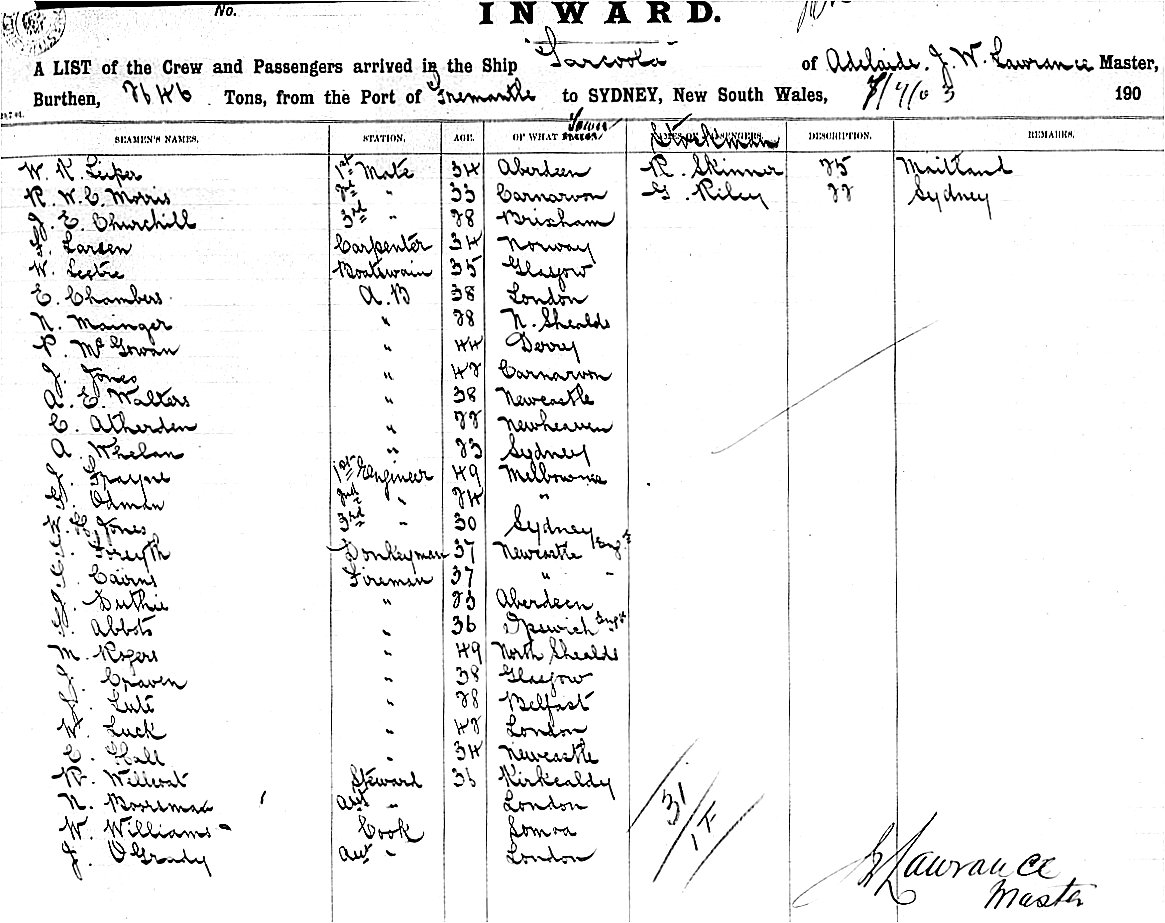 No.
INWARD.
A LIST of the Crew and Passengers arrived in the Ship "Tarcoola" of Adelaide, J. W. Lawrance Master,
Burthen, 2646 Tons, from the Port of Fremantle to SYDNEY, New South Wales, 7/4/03 190
SEAMEN'S NAMES. STATION. AGE. OF WHAT Town Stockman DESCRIPTION. REMARKS.
W. R. Leiper 1st Mate 34 Aberdeen R. Skinner 25 Maitland
R. W. E. Morris 2nd " 33 Carnarvon G. Riley 22 Sydney
J. E. Churchill 3rd " 28 Brixham
Larsen Carpenter 34 Norway
W. Boatswain 35 Glasgow
E. Chambers A.B 38 London
N. Mainger " 28 N. Shealds
P. McGowan " 44 Derry
J. Jones " 42 Carnarvon
A. E. Walters " 38 Newcastle
C. Atherden " 22 Newheaven
A. Whelan " 23 Sydney
Payne 1st Engineer 49 Melbourne
Odman 2nd " 24 "
Jones 3rd " 30 Sydney
Forsyth Donkeyman 37 Newcastle Engd
Cairns Fireman 37 " "
Duthie " 23 Aberdeen
Abbots " 36 Ipswich Engd
M. Rogers " 49 North Shealds
J. Craven " 38 Glasgow
Lute " 28 Belfast
W. Luck " 42 London
E. Hall " 34 Newcastle
R. Steward 36 Kirkcaldy
N. Boorsman Ast " London
W. Williams Cook Somoa
J. O'Grady Ast " London
31/1F
Lawrance
Master